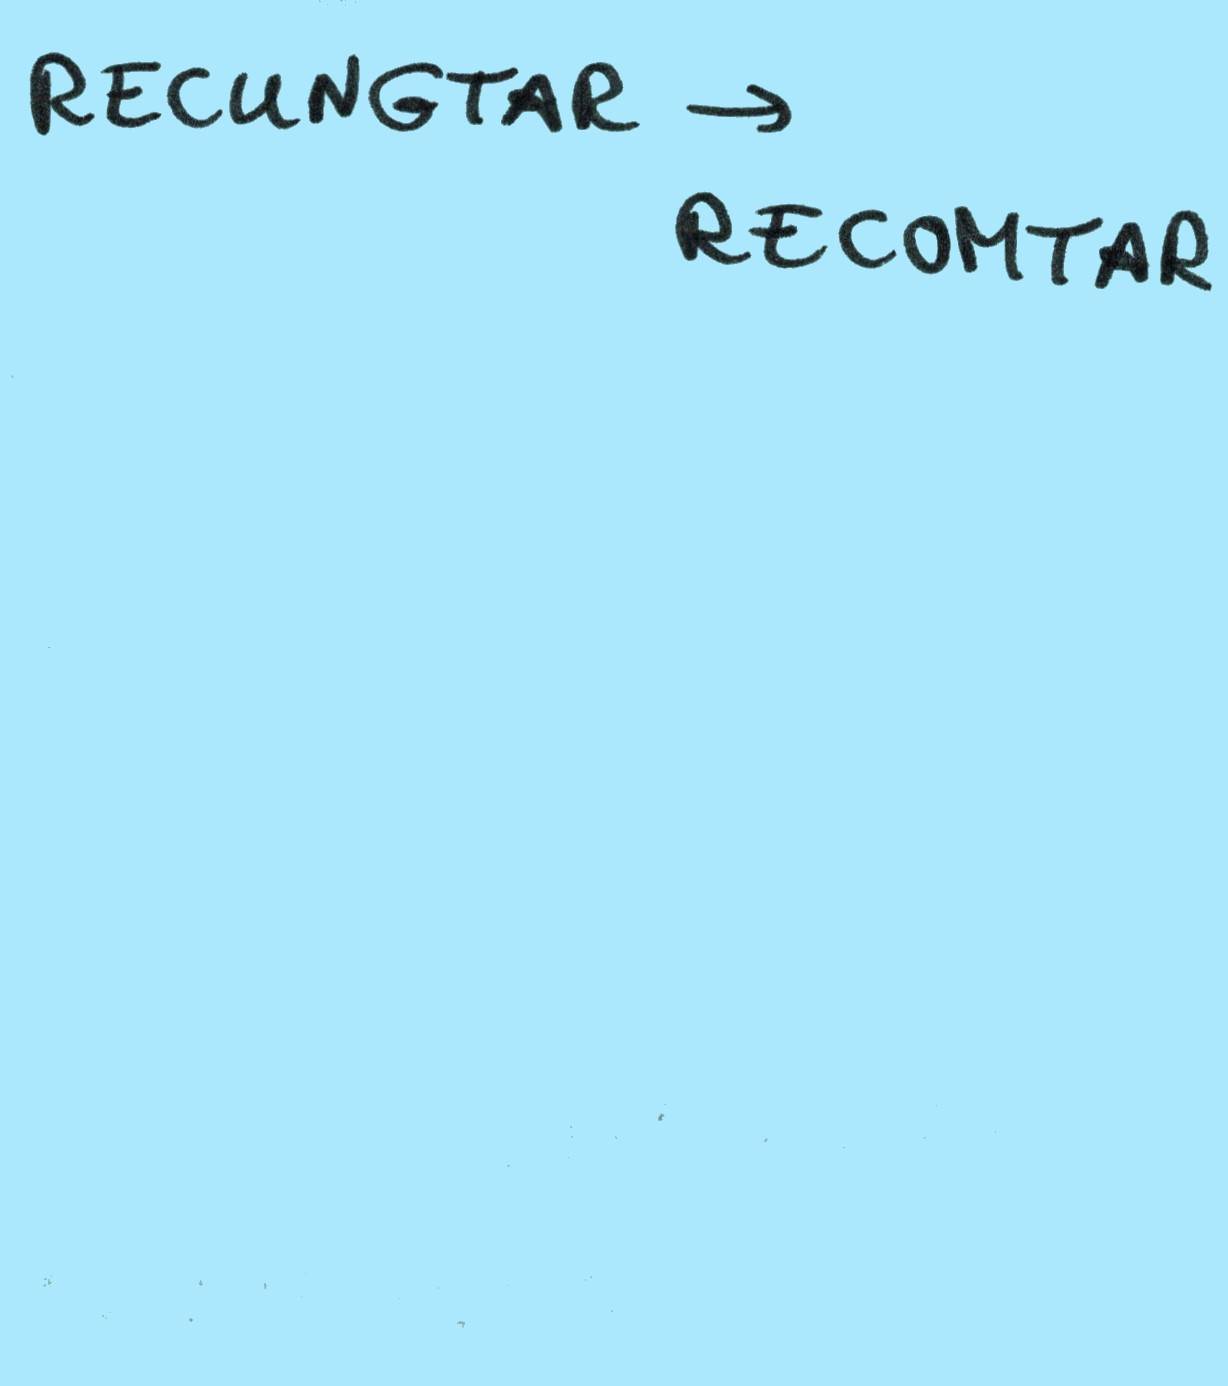 RECUNGTAR →
RECOMTAR